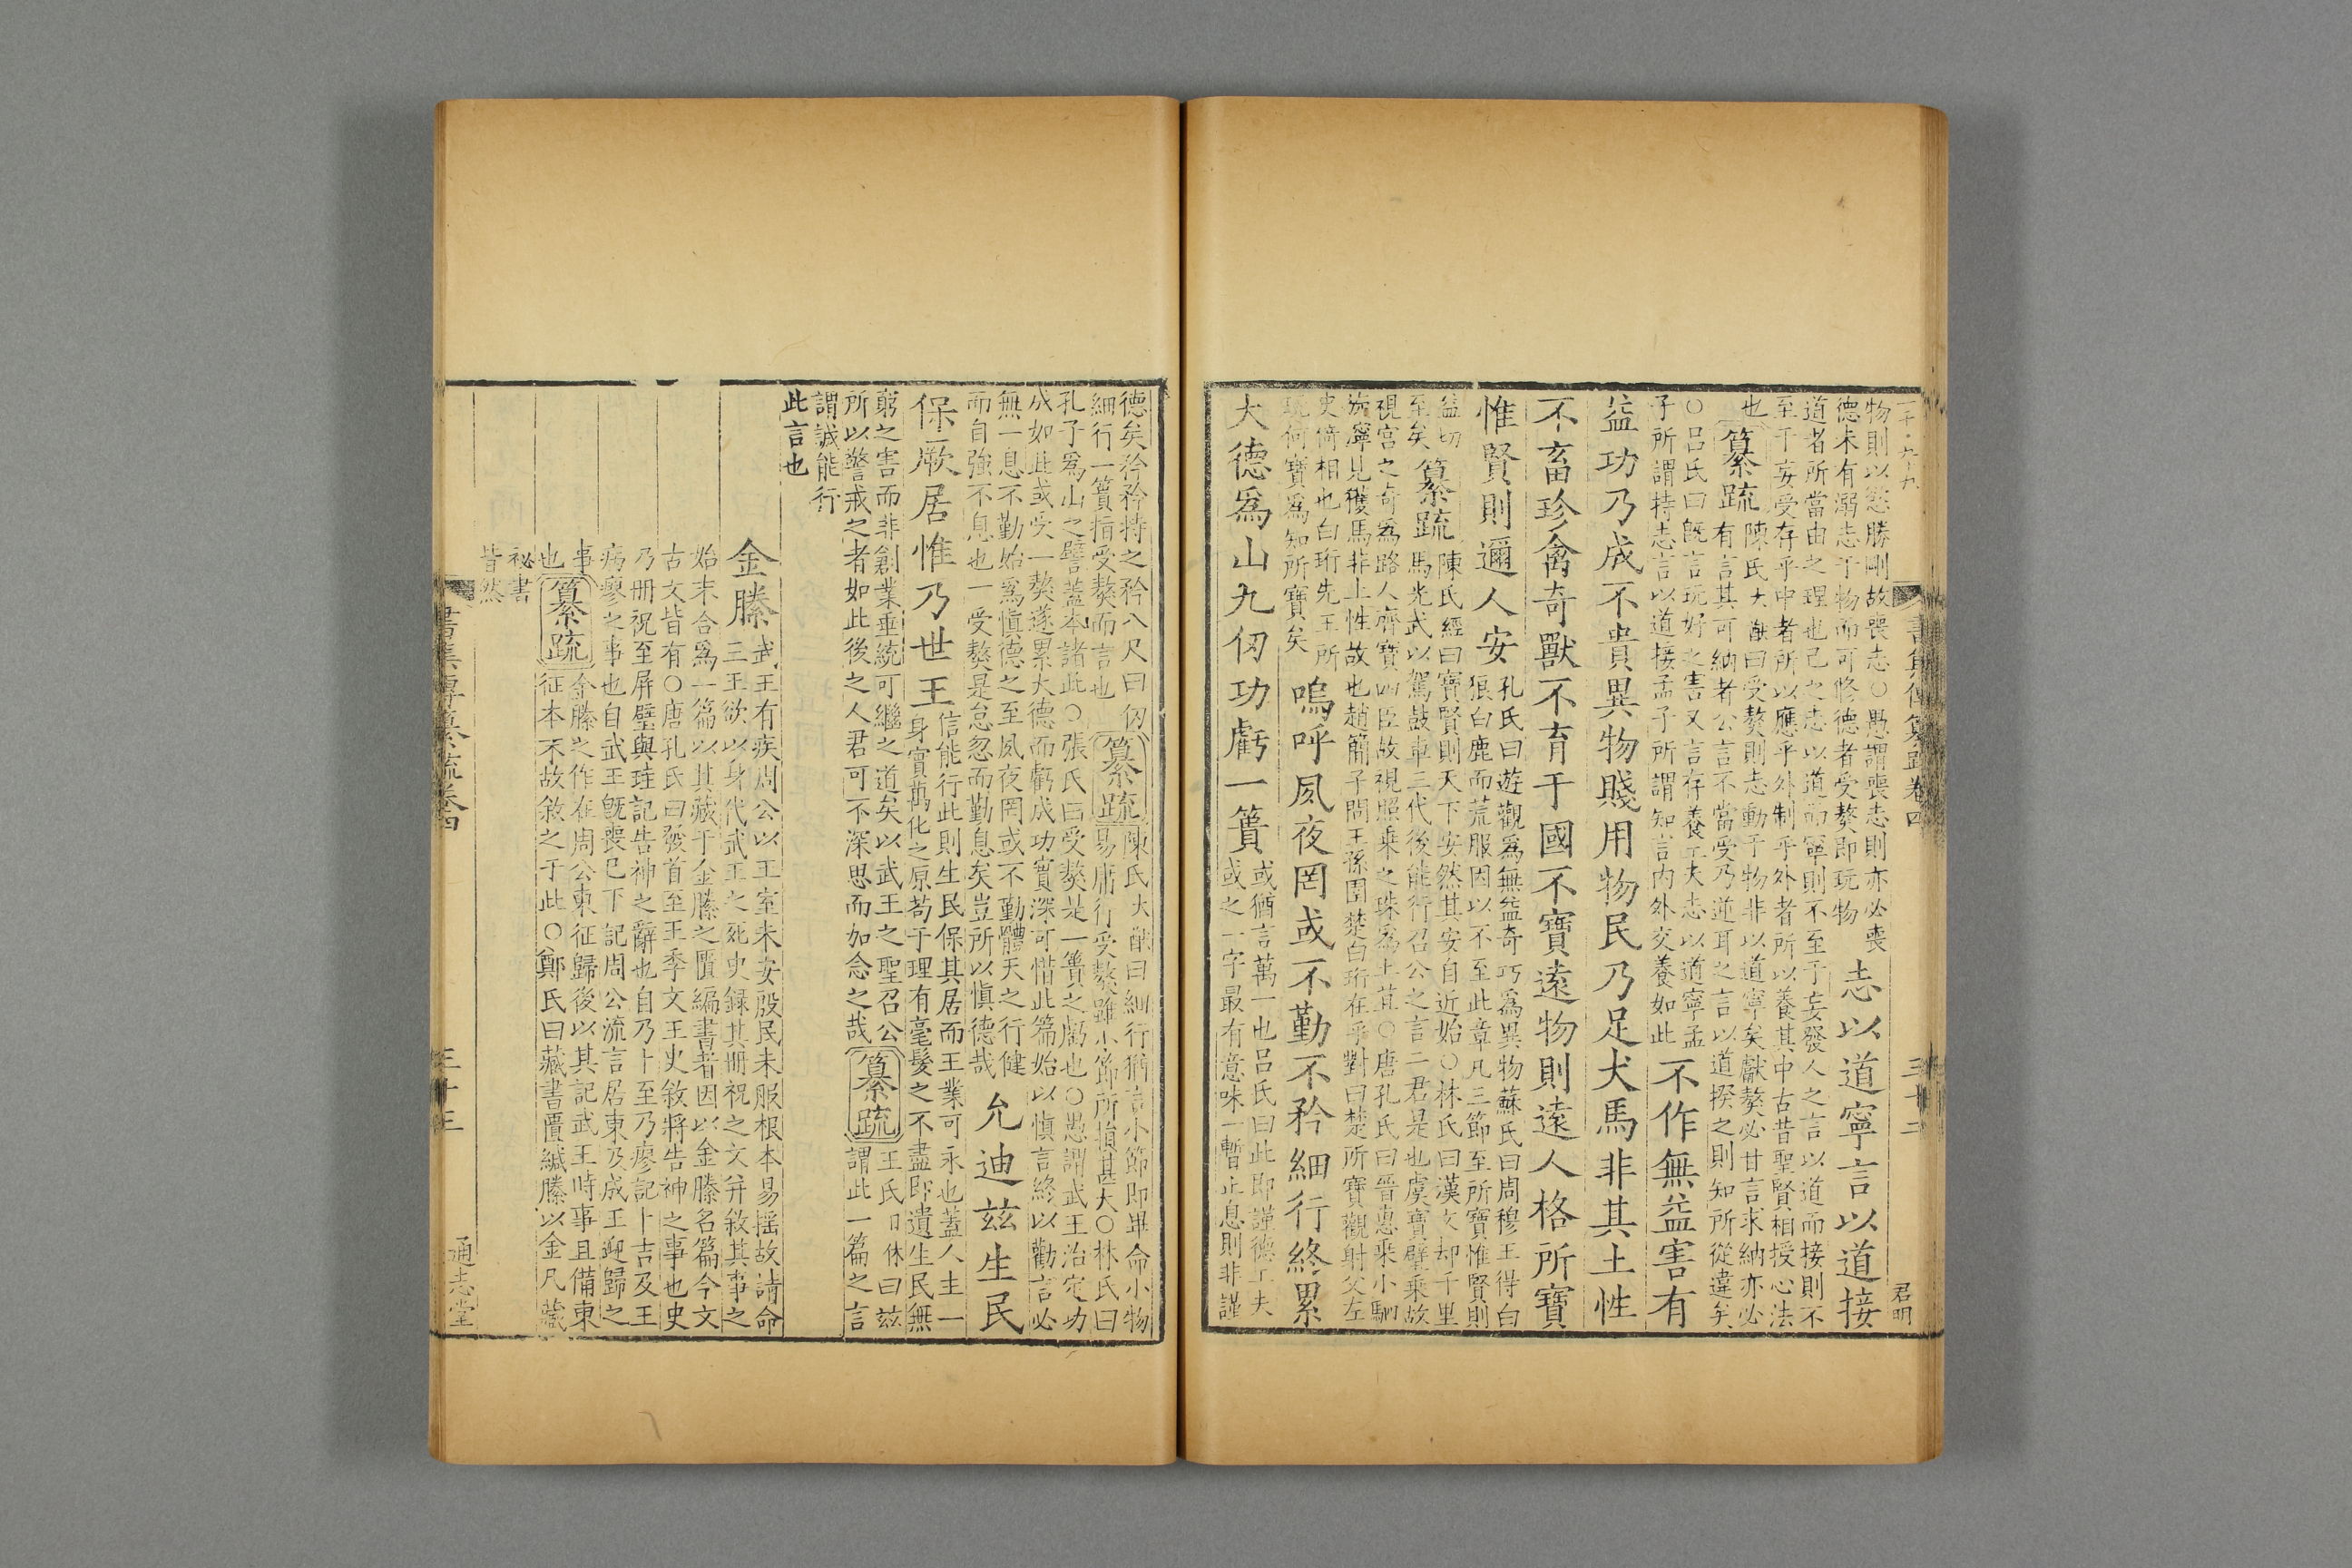 物則以慾勝剛故喪志○愚謂喪志則亦必喪
德未有溺志于物而可修德者受獒即玩物
志以道寧言以道接
道者所當由之理也己之志以道而寧則不至于妄發人之言以道而接則不
至于妄受存乎中者所以應乎外制乎外者所以養其中古昔聖賢相授心法
也
纂疏
陳氏大猷曰受獒則志動于物非以道寧矣獻獒必甘言求納亦必
有言其可納者公言不當受乃逆耳之言以道揆之則知所從違矣
○呂氏曰旣言玩好之害又言存養工夫志以道寧孟
子所謂持志言以道接孟子所謂知言內外交養如此
不作無益害有
益功乃成不貴異物賤用物民乃足犬馬非其土性
不畜珍禽奇獸不育于國不寶遠物則遠人格所寶
惟賢則邇人安
孔氏曰遊觀爲無益奇巧爲異物蘇氏曰周穆王得白
狼白鹿而荒服因以不至此章凡三節至所寶惟賢則
益切
至矣
纂疏
陳氏經曰寶賢則天下安然其安自近始○林氏曰漢文却千里
馬光武以駕鼓車三代後能行召公之言二君是也虞寶璧乘故
視宮之奇爲路人齊寶四臣故視照乘之珠爲土苴○唐孔氏曰晉惠乘小駟
旋濘見獲馬非土性故也趙簡子問王孫圉楚白珩在乎對曰楚所寶觀射父左
史倚相也白珩先王所
玩何寶焉知所寶矣
嗚呼夙夜罔或不勤不矜細行終累
大德爲山九仞功虧一簣
或猶言萬一也呂氏曰此即謹德工夫
或之一字最有意味一暫止息則非謹
書集傳纂疏卷四
三十二
君明
德矣矜矜持之矜八尺曰仞
細行一簣指受獒而言也
纂疏
陳氏大猷曰細行猶言小節即畢命小物
易庸行受獒雖小節所損甚大○林氏曰
孔子爲山之譬蓋本諸此○張氏曰受獒是一簣之虧也○愚謂武王治定功
成如此或受一獒遂累大德而虧成功實深可惜此篇始以愼言終以勤言必
無一息不勤始爲愼德之至夙夜罔或不勤體天之行健
而自強不息也一受獒是怠忽而勤息矣豈所以愼德哉
允迪兹生民
保厥居惟乃世王
信能行此則生民保其居而王業可永也蓋人主一
身實萬化之原苟于理有毫髮之不盡即遺生民無
窮之害而非創業垂統可繼之道矣以武王之聖召公
所以警戒之者如此後之人君可不深思而加念之哉
纂疏
王氏日休曰兹
謂此一篇之言
謂誠能行
此言也
金縢
武王有疾周公以王室未安殷民未服根本易搖故請命
三王欲以身代武王之死史録其冊祝之文并敘其事之
始末合爲一篇以其藏于金縢之匱編書者因以金縢名篇今文
古文皆有○唐孔氏曰發首至王季文王史敘將告神之事也史
乃冊祝至屏璧與珪記告神之辭也自乃卜至乃瘳記卜吉及王
病瘳之事也自武王旣喪已下記周公流言居東乃成王迎歸之
事
也
纂疏
金縢之作在周公東征歸後以其記武王時事且備東
征本末故敘之于此○鄭氏曰藏書匱緘縢以金凡藏
祕書
皆然
書集傳纂疏卷四
三十三
通志堂